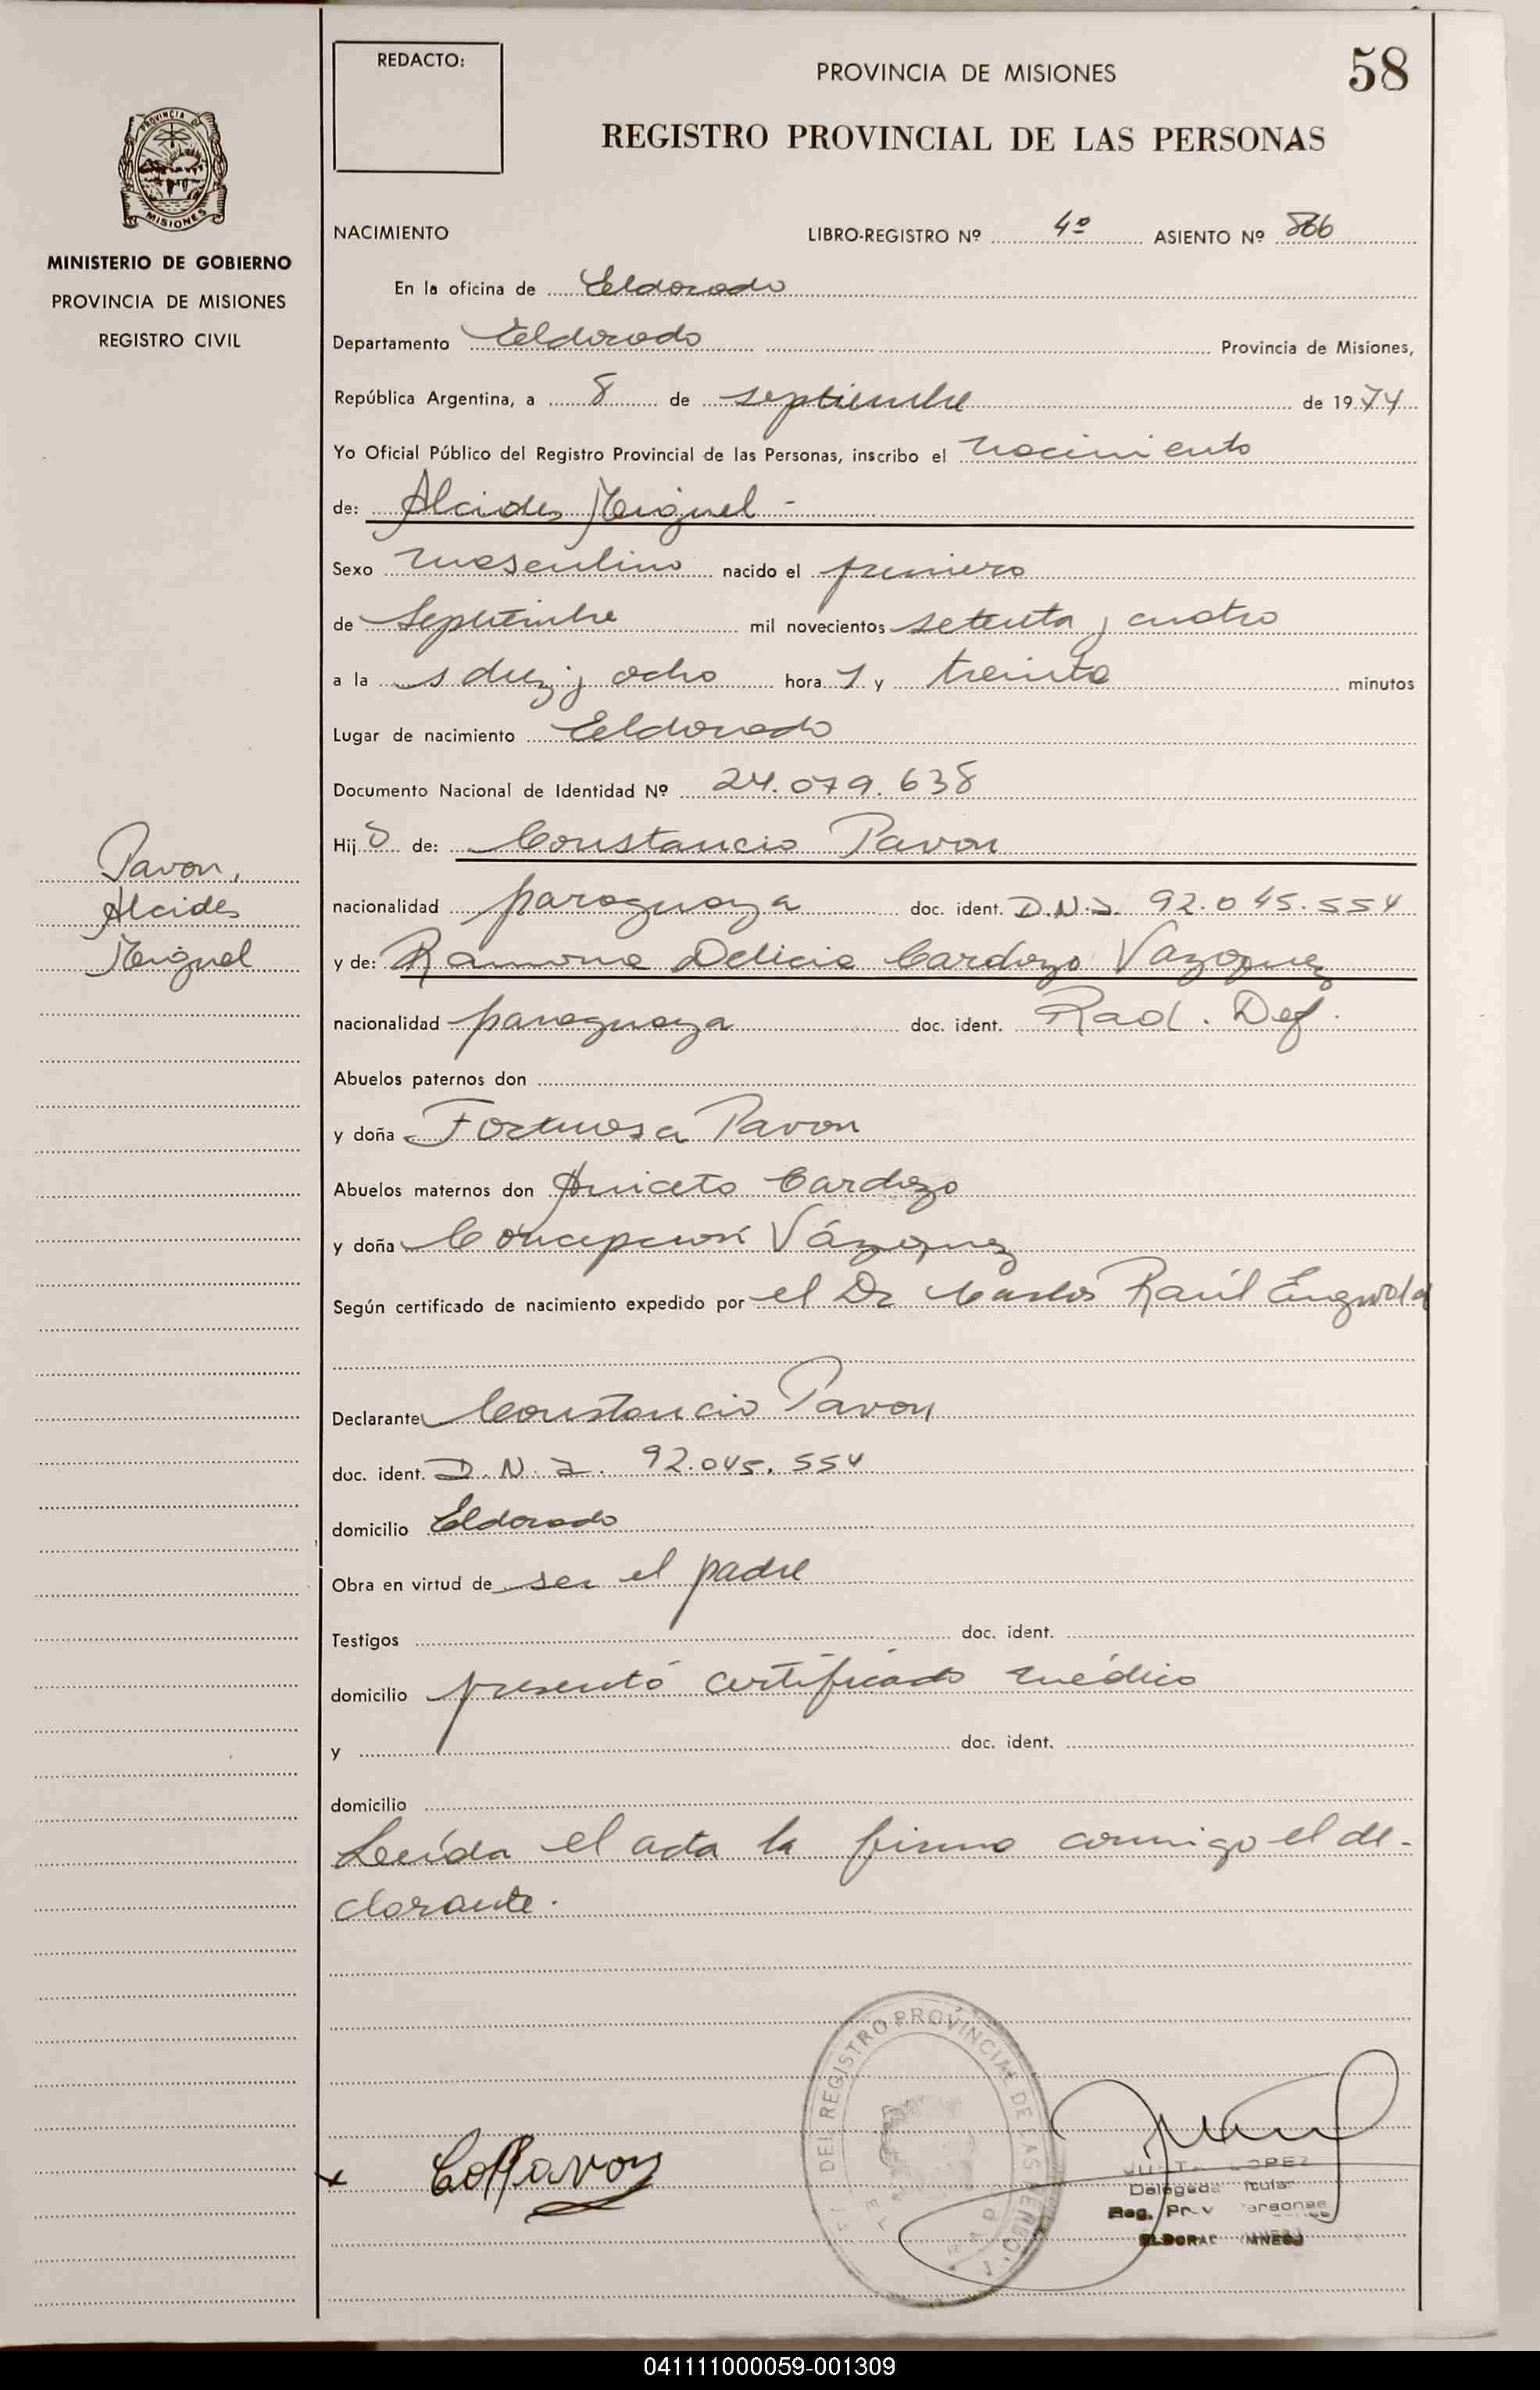 REDACTO:
PROVINCIA DE MISIONES
58
REGISTRO PROVINCIAL DE LAS PERSONAS
PROVINCIA DE
MISIONES
MINISTERIO DE GOBIERNO
PROVINCIA DE MISIONES
REGISTRO CIVIL
NACIMIENTO LIBRO-REGISTRO Nº 4º ASIENTO Nº 866
En la oficina de Eldorado
Departamento Eldorado Provincia de Misiones,
República Argentina, a 8 de septiembre de 1974
Yo Oficial Público del Registro Provincial de las Personas, inscribo el nacimiento
de: Alcides Miguel -
Sexo masculino nacido el primero
de Septiembre mil novecientos setenta y cuatro
a la s diez y ocho hora s y treinta minutos
Lugar de nacimiento Eldorado
Documento Nacional de Identidad Nº 24.079.638
Hij o de: Constancio Pavon
Pavon,
Alcides
Miguel
nacionalidad paraguaya doc. ident. D.N.I. 92.045.554
y de: Ramona Delicia Cardozo Vazquez
nacionalidad paraguaya doc. ident. Rad. Def.
Abuelos paternos don
y doña Fortunosa Pavon
Abuelos maternos don Aniceto Cardozo
y doña Concepción Vázquez
Según certificado de nacimiento expedido por el Dr Carlos Raúl
Declarante Constancio Pavon
doc. ident. D.N.I. 92.045.554
domicilio Eldorado
Obra en virtud de ser el padre
Testigos doc. ident.
domicilio presentó certificado médico
y doc. ident.
domicilio
Leída el acta la firma conmigo el de-
clarante.
DEL REGISTRO PROVINCIAL DE LAS PERSO
x CoPavon
LOPEZ
Delegada
Reg.
041111000059-001309